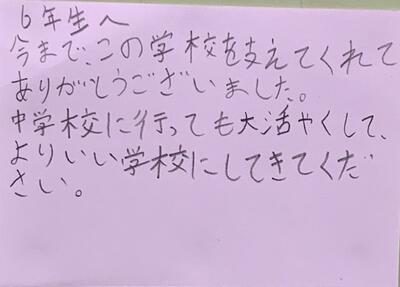 6年生へ
今まで、この学校を支えてくれて
ありがとうございました。
中学校に行っても大活やくして、
よりいい学校にしてきてくだ
さい。